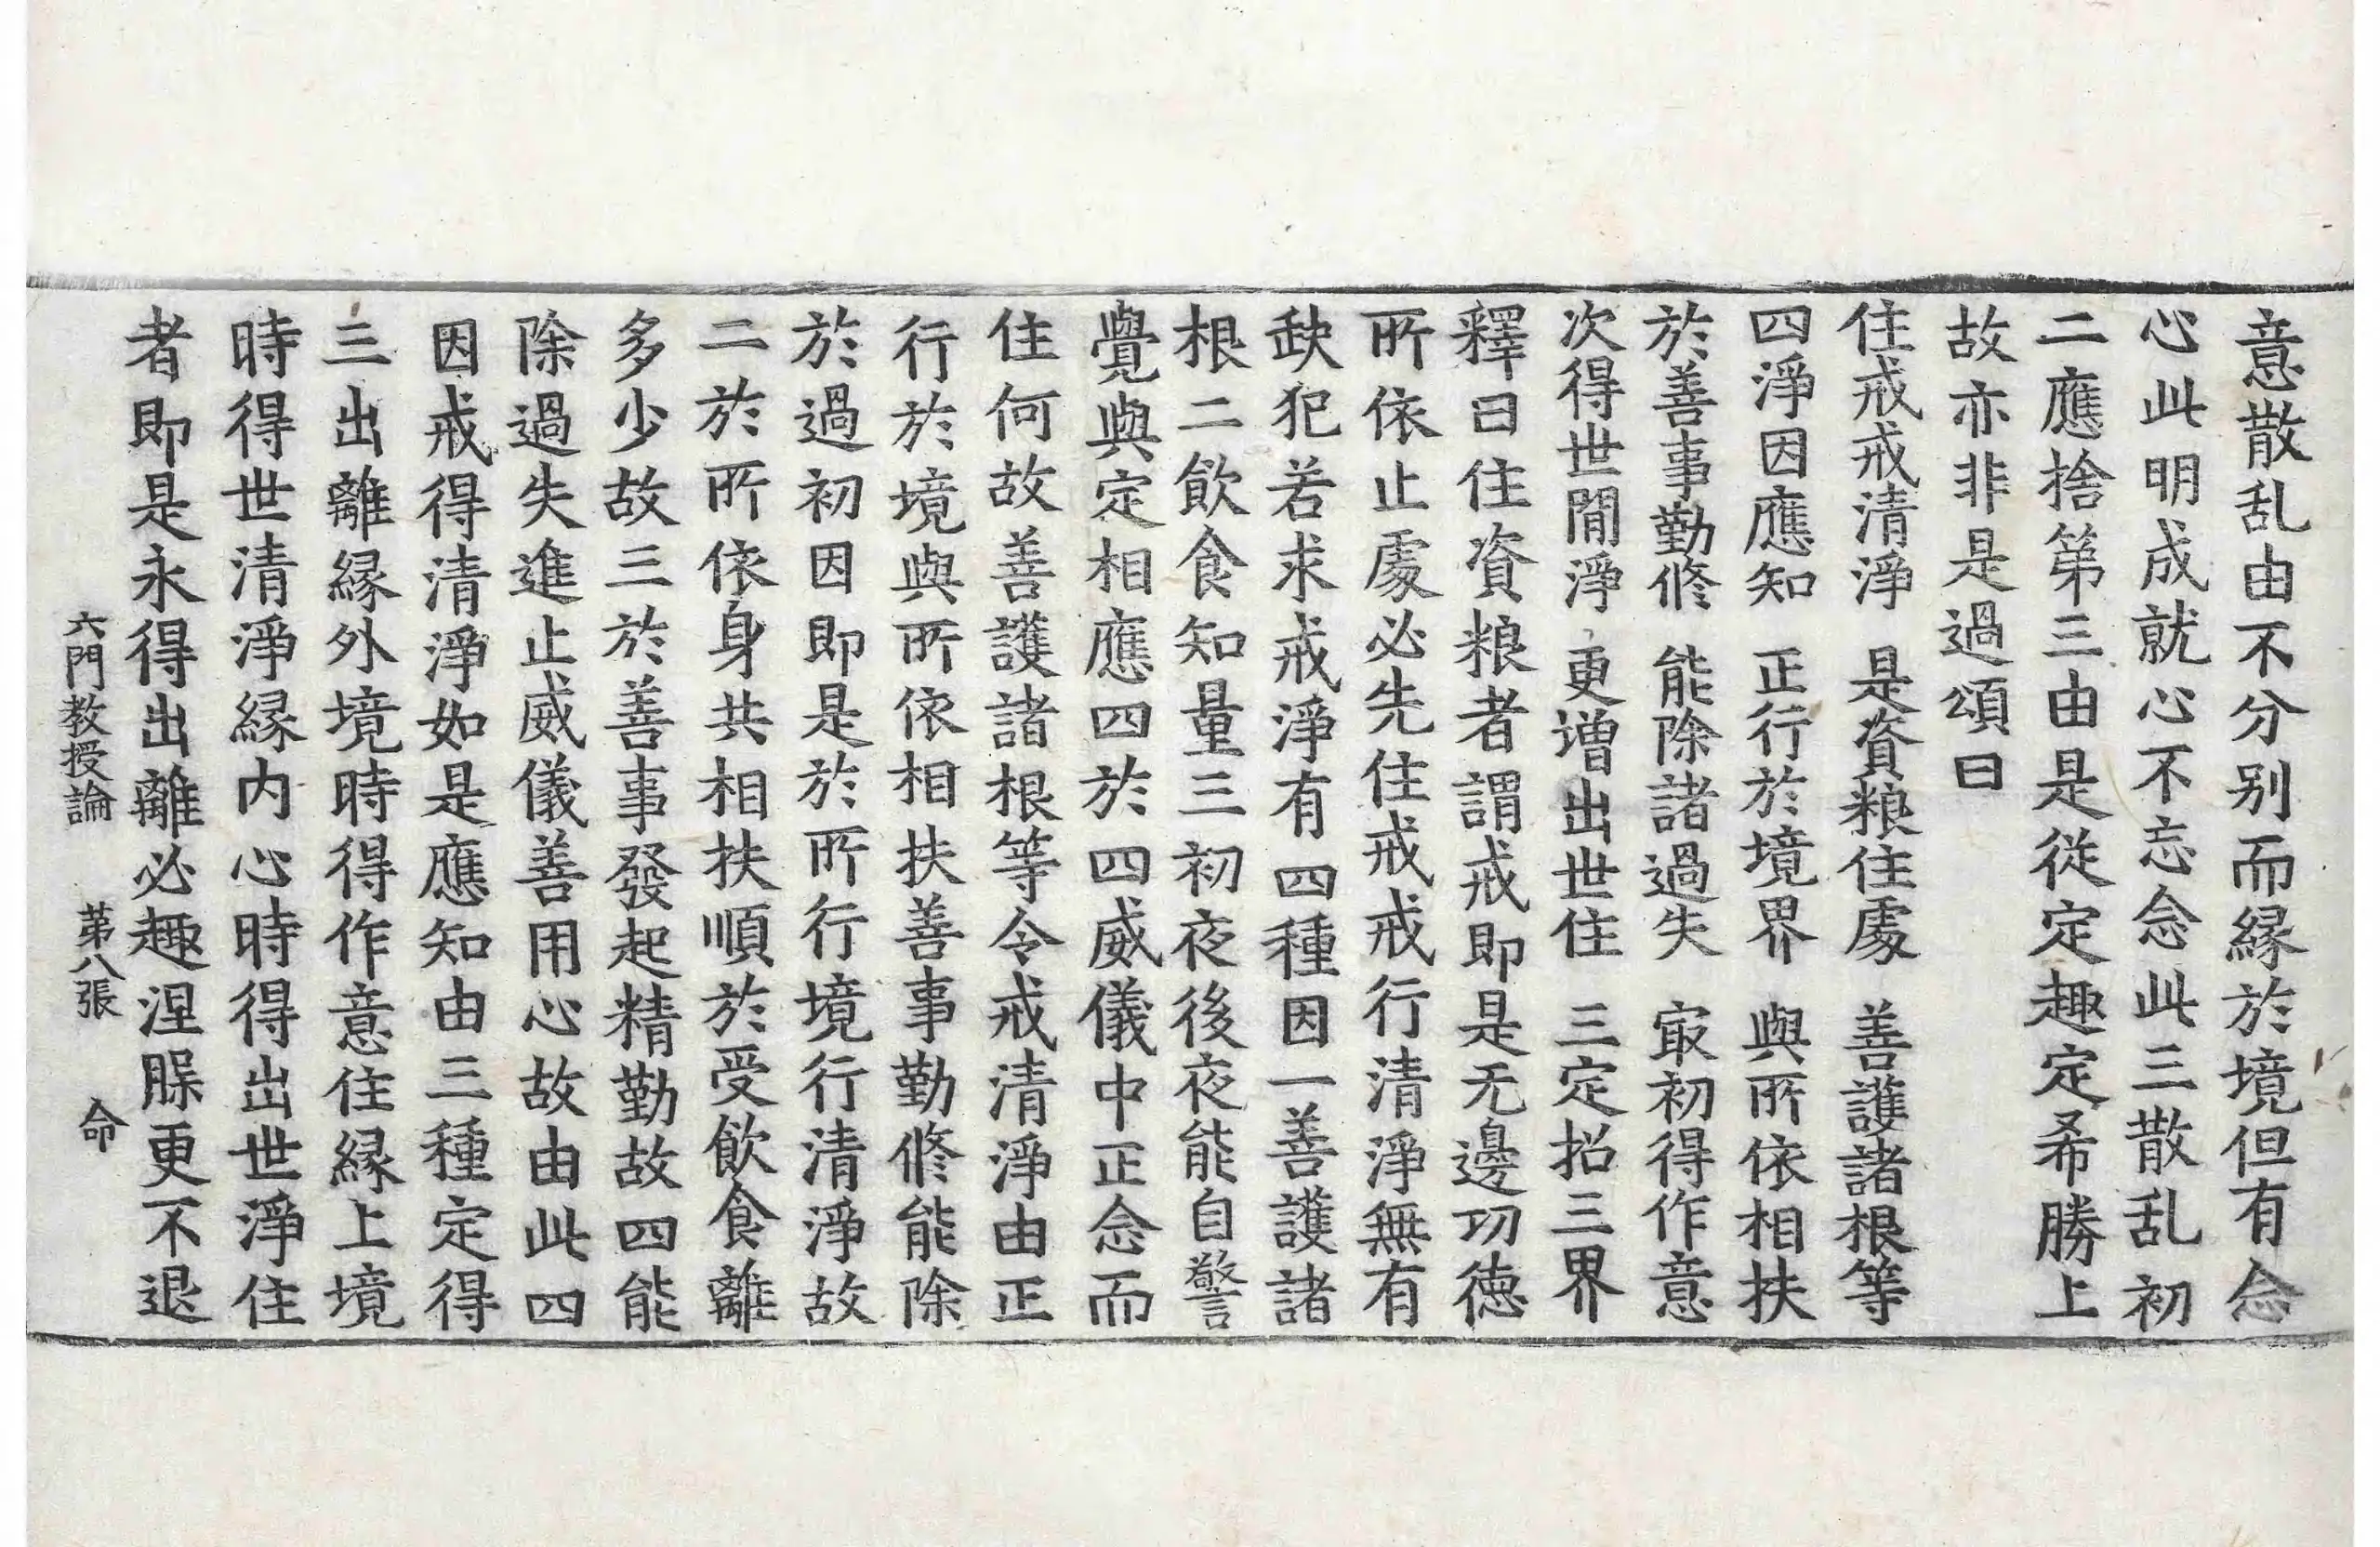 意散乱由不分别而縁於境但有念
心此明成就心不忘念此三散乱初
二應捨第三由是從定趣定希勝上
故亦非是過頌曰
住戒戒清淨　是資粮住處　善護諸根等
四淨因應知　正行於境界　與所依相扶
於善事勤修　能除諸過失　㝡初得作意
次得世間淨　更増出世住　三定招三界
釋曰住資粮者謂戒即是无邊功徳
所依止處必先住戒戒行清淨無有
缺犯若求戒淨有四種因一善護諸
根二飲食知量三初夜後夜能自警
覺與定相應四於四威儀中正念而
住何故善護諸根等令戒清淨由正
行於境與所依相扶善事勤修能除
於過初因即是於所行境行清淨故
二於所依身共相扶順於受飲食離
多少故三於善事發起精勤故四能
除過失進止威儀善用心故由此四
因戒得清淨如是應知由三種定得
三出離縁外境時得作意住縁上境
時得世清淨縁内心時得出世淨住
者即是永得出離必趣涅槃更不退
六門教授論　第八張　命